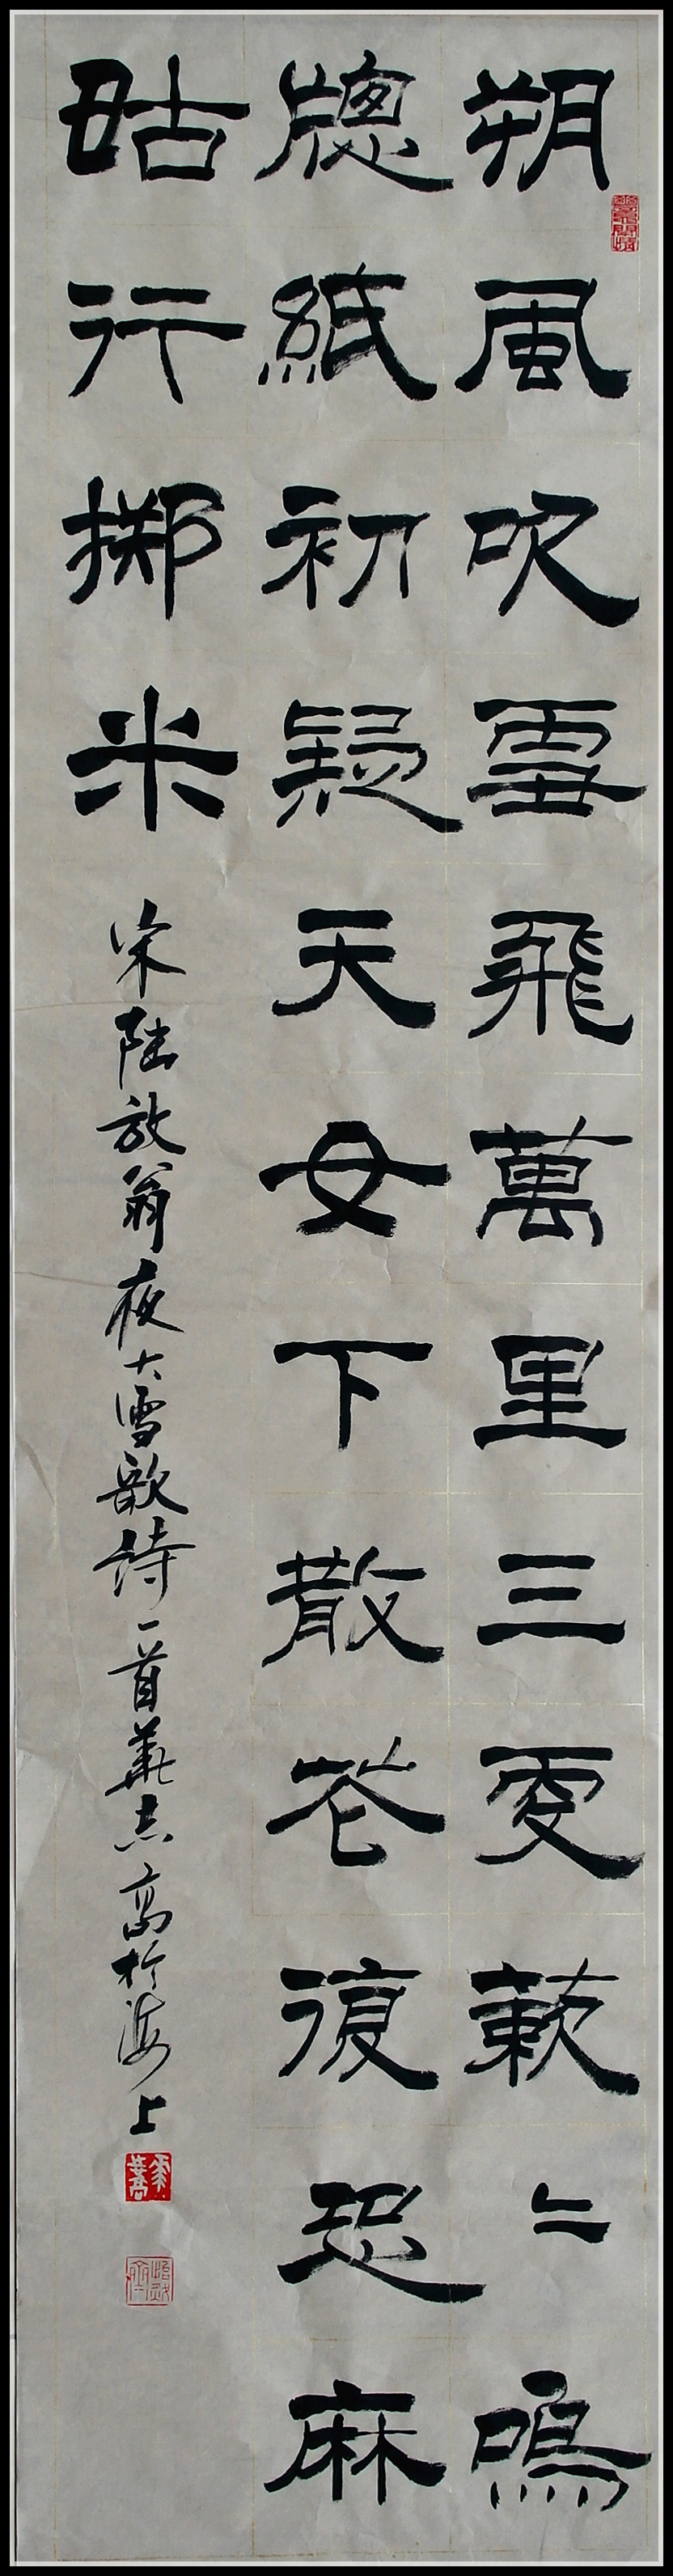 朔風吹雪飛萬里三更蔌〻鳴
牕紙初疑天女下散花復恐麻
姑行掷米
宋陸放翁夜大雪歌詩一首華志高於海上